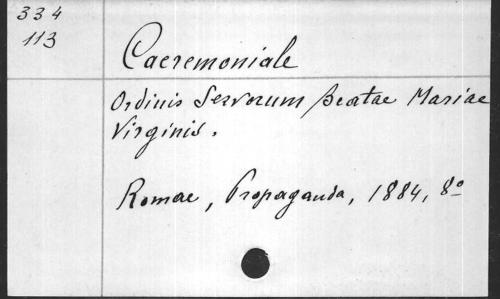 334
113
Caeremoniale
Ordinis Servorum Beatae Mariae
Virginis.
Romae, Propaganda, 1884, 8º